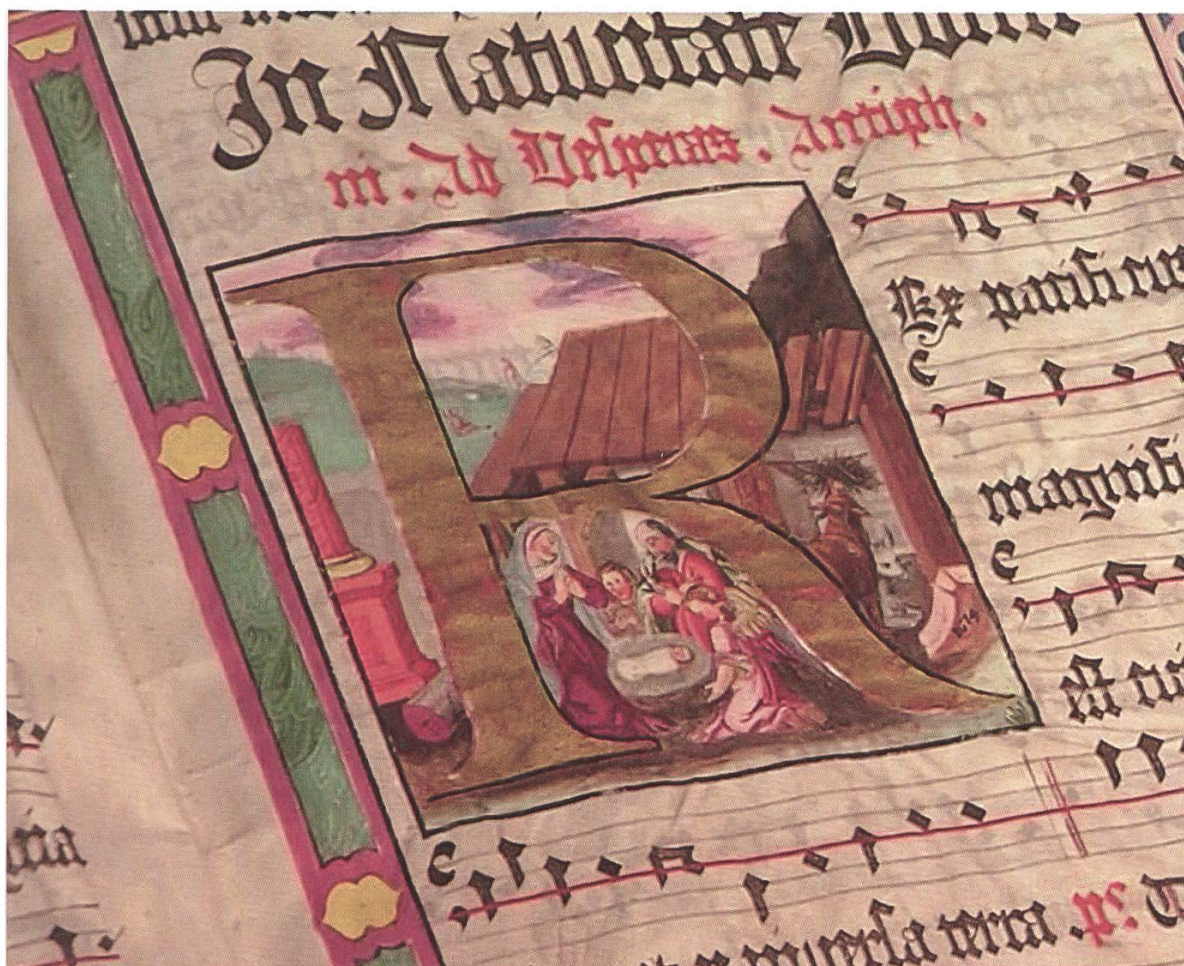 In Natiuitate Domi
ni. Ad Vesperas. Antiph.
R
Ex pacificus
magnifi
est cui
uniuersa terra. ps.